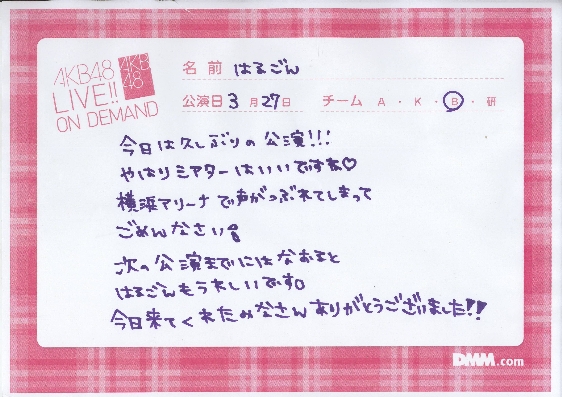 AKB48
LIVE!!
ON DEMAND
AKB
48
名前 はるごん
公演日 3月27日 チーム A・K・B・研
今日は久しぶりの公演!!!
やはりシアターはいいですね♡
横浜アリーナで声がつぶれてしまって
ごめんなさい
次の公演までにはなおると
はるごんもうれしいです。
今日来てくれたみなさんありがとうございました!!
DMM.com